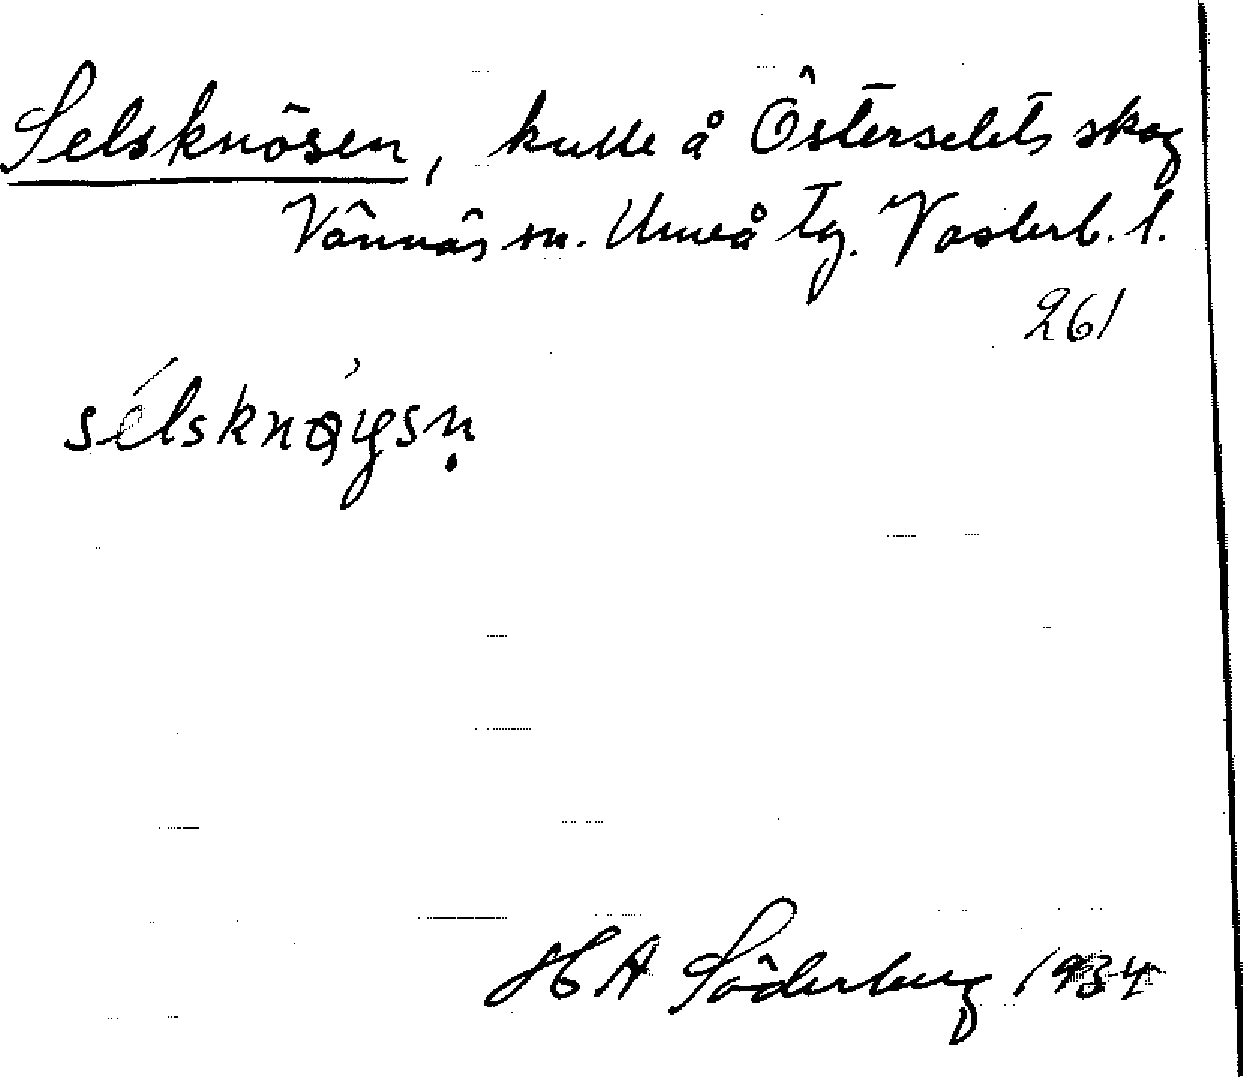 Selsknösen, kulle å Österselets skog
Vännäs sn. Umeå tg. Västerb. l.
261
sélsknøysn̥
H A Söderberg 1934